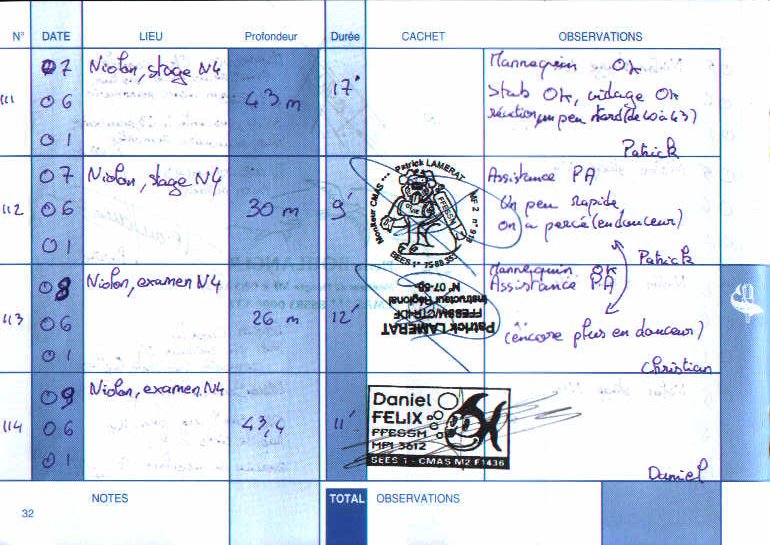 N° DATE LIEU Profondeur Durée CACHET OBSERVATIONS
111 07 06 01 Niolon, stage N4 43 m 17'
Mannequin OK
Stab OK, vidage OK
réaction un peu tard (de 40 à 43)
Patrick
112 07 06 01 Niolon, stage N4 30 m 9'
Moniteur CMAS ... Patrick LAMERAT MF 2 n° 978
FFESSM
SEES 1°
Assistance PA
Un peu rapide
on a percé (en douceur)
Patrick
113 08 06 01 Niolon, examen N4 26 m 12'
Patrick LAMERAT
FFESSM/CTR-IDF
Instructeur Régional
N° 07-69
Mannequin OK
Assistance PA
(encore plus en douceur)
Christian
114 09 06 01 Niolon, examen N4 43,4 11'
Daniel
FELIX
FFESSM
MF1 3612
SEES 1 - CMAS M2 F1436
Daniel
NOTES TOTAL OBSERVATIONS
32